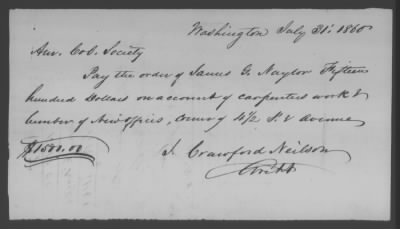 Washington July 31st 1860
Am. Col. Society
Pay the order of James G. Naylor Fifteen
hundred Dollars on account of carpenters work &
lumber of New offices, corner of 4 1/2 St & Avenue
$1500.00
J. Crawford Neilson
Archt